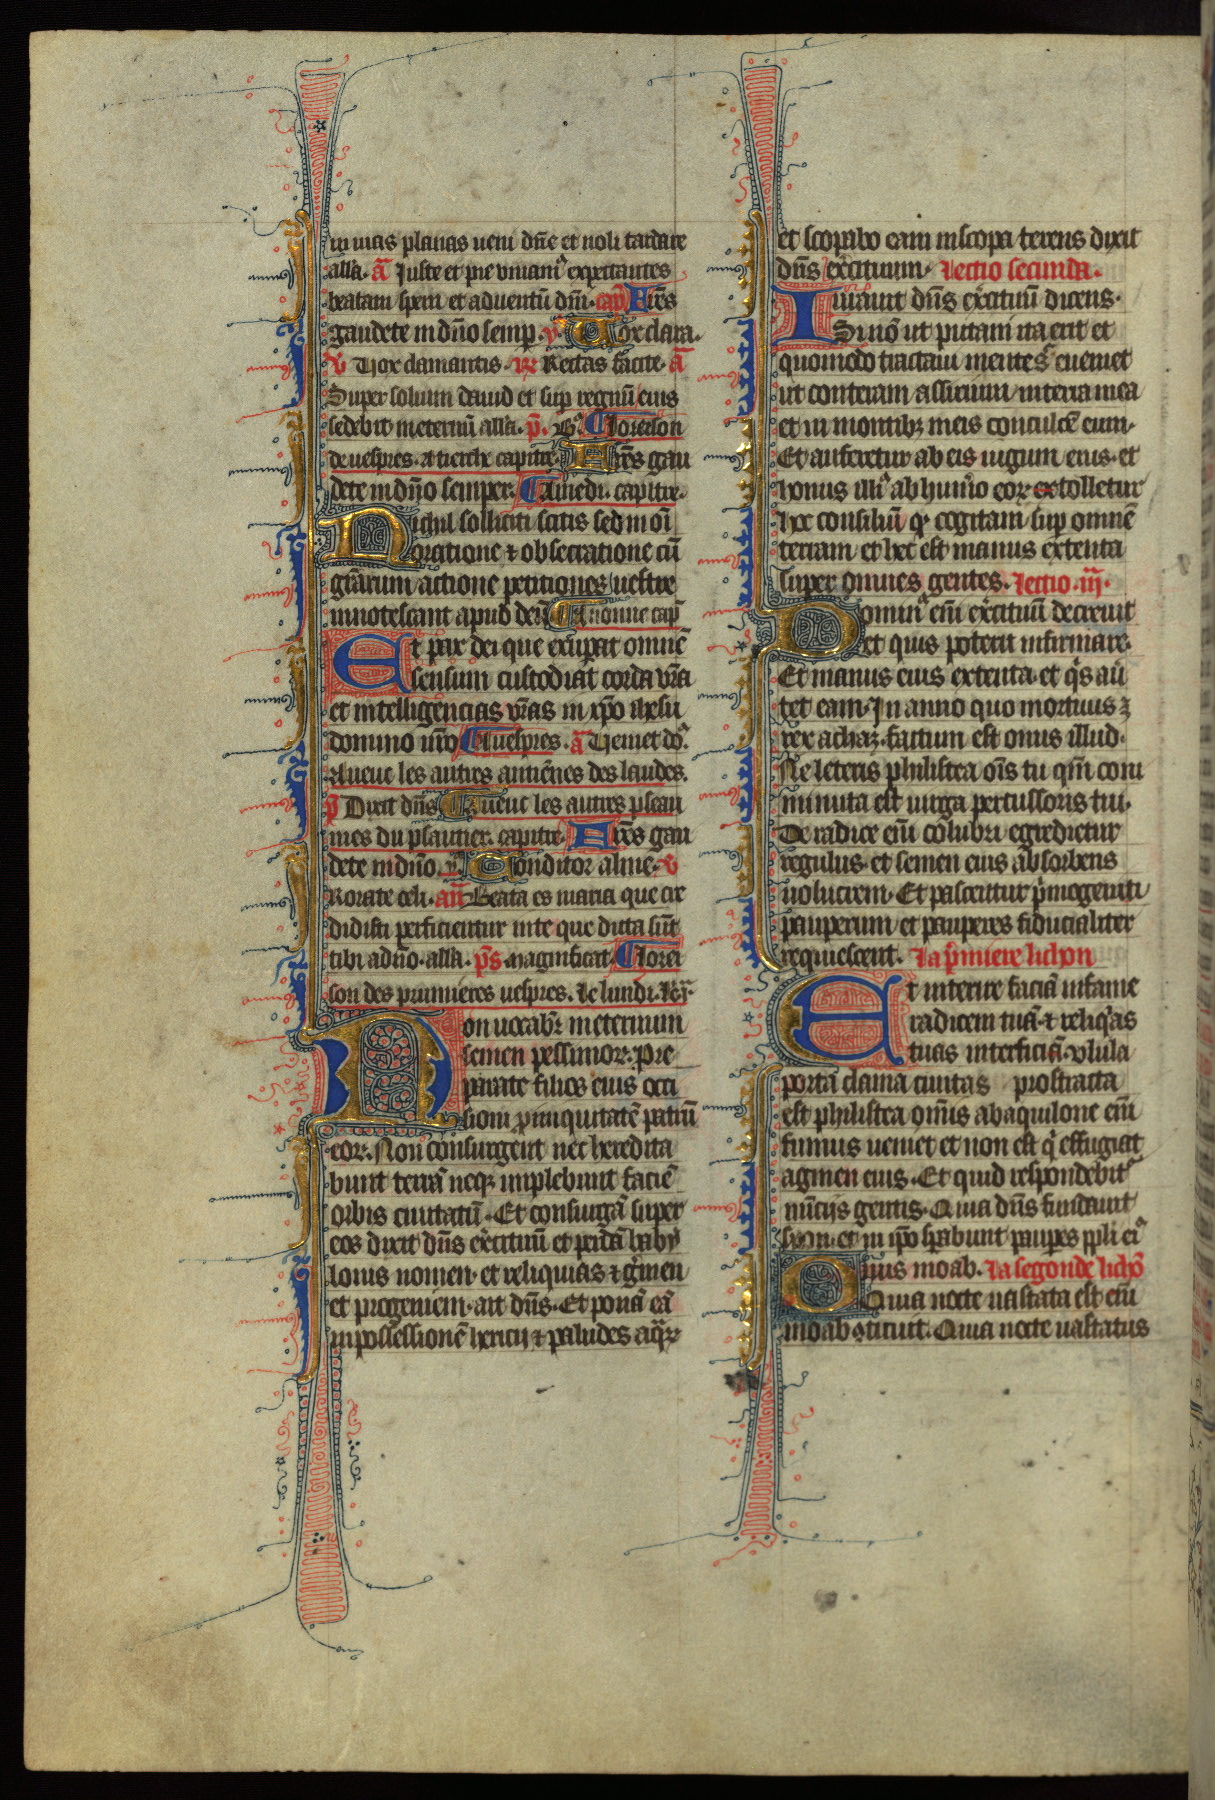 in vias planas veni dñe et noli tardare
alła. a᷈ Iuste et pie vivam᷒ expectantes
beatam spem et adventũ dñi. cap̃ Fr̃es
gaudete in dño semp. y᷒. Vox clara.
v̾ Vox clamantis. R̾ Rectas facite. a᷈
Super solium david et sup regnũ eius
sedebit in eternũ alła. p̃. B᷒. Loreison
de vespres. A tierche capitre. Fr̃es gau
dete in dño semper. A miedi. capitre.
Nichil solliciti sitis sed in oĩ
oratione ⁊ obsecratione cũ
gr̃arum actione petitiones vestre
innotescant apud deũ. A nonne cap̃
Et pax dei que exup̃at omnẽ
sensum custodiat corda vr̃a
et intelligencias vr̃as in xp̃o ihesu
domino nr̃o. A vespres. a᷈ Veniet dõ.
Aveuc les autres antiẽnes des laudes.
p̃ Dixit dñs. Aveuc les autres pseau
mes du psautier. capitre. Fr̃es gau
dete in dño. y᷒. Conditor alme. v̾
Rorate celi. añ Beata es maria que cre
didisti perficientur in te que dicta sũt
tibi a dño. alła. p̃s magnificat. Lorei
son des prumieres vespres. Le lundi. le᷈.
Non vocabĩt in eternum
semen pessimoꝝ: pre
parate filios eius occi
sioni ꝓ iniquitatẽ patrũ
eoꝝ. Non consurgent nec heredita
bunt terrã neqꝫ implebunt faciẽ
orbis civitatũ. Et consurgã super
eos dixit dñs ex̾cituũ et perdã baby
lonis nomen. et reliquias ⁊ g̾men
et progeniem. ait dñs. Et ponã eã
in possessionẽ hericij ⁊ paludes aq̃ꝝ
et scopabo eam in scopa terens dixit
dñs ex̾cituum. Lectio secunda.
Iuravit dñs ex̾cituũ dicens.
Si nõ ut putavi ita erit et
quomodo tractavi mente s̾ eveniet
ut conteram assirium in terra mea
et in montibꝫ meis conculcẽ eum.
Et auferetur ab eis iugum eius. et
honus illi᷒ ab hum̾o eoꝝ extolletur
hoc consiliũ qͦ cogitavi sup omnẽ
terram et hec est manus extenta
super omnes gentes. Lectio .iij᷈.
Domin᷒ eñi ex̾cituũ decrevit
et quis poterit infirmare.
Et manus eius extenta et qͥs av̾
tet eam. In anno quo mortuus ẽ
rex achaz. factum est onus illud.
Ne leteris philistea oĩs tu qm̃ com
minuta est virga percussoris tui.
De radice eñi colubri egredietur
regulus. et semen eius absorbens
volucrem. Et pascentur p̾mogeniti
pauperum et pauperes fiducialiter
requiescent. La p̾miere lichon
Et interire faciã in fame
radicem tuã. ⁊ reliq̾as
tuas interficiã. vlula
porta clama civitas prostrata
est philistea om̃is ab aquilone eñi
fumus veniet et non est qͥ effugiat
agmen eius. Et quid respondebit᷒
nũcijs gentis. Quia dñs fundavit
syon. et in ip̃o sp̃abunt paup̃es ppłi ei᷒
Onus moab. La segonde lichõ
Quia nocte vastata est eñi
moab sticuit. Quia nocte vastatus